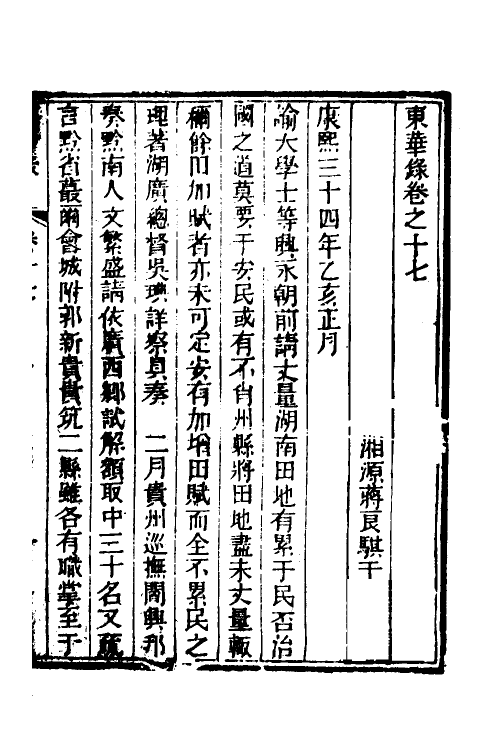 東華錄卷之十七
湘源蔣良騏千
康熙三十四年乙亥正月
諭大學士等興永朝前請丈量湖南田地有累于民否治
國之道莫要于安民或有不肖州縣將田地盡未丈量輒
稱餘田加賦者亦未可定安有加增田賦而全不累民之
理著湖廣總督吳璵詳察具奏　二月貴州巡撫閻興邦
奏黔南人文繁盛請依廣西鄉試解額取中三十名又疏
言黔省蕞爾會城附郭新貴貴筑二縣雖各有職掌至于